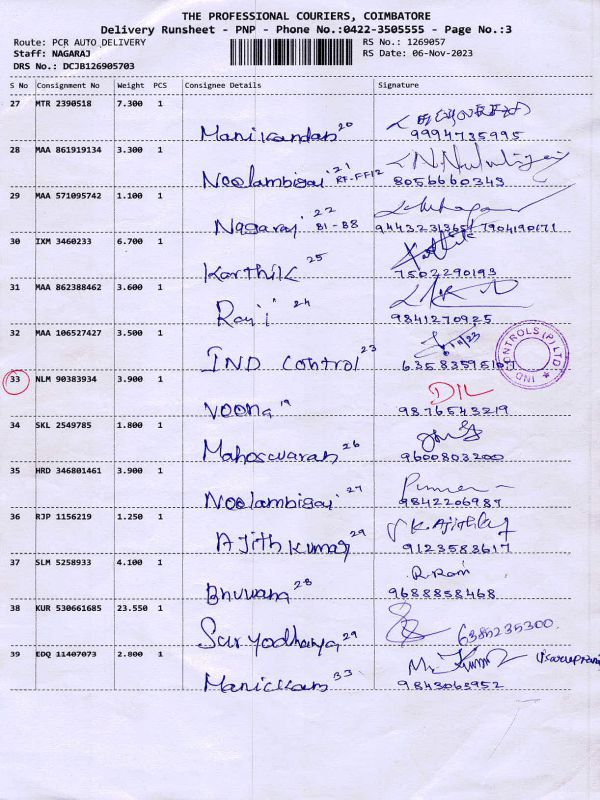 THE PROFESSIONAL COURIERS, COIMBATORE
Delivery Runsheet - PNP - Phone No.:0422-3505555 - Page No.:3
Route: PCR AUTO DELIVERY RS No.: 1269057
Staff: NAGARAJ RS Date: 06-Nov-2023
DRS No.: DCJB126905703
S No Consignment No Weight PCS Consignee Details Signature
27 MTR 2390518 7.300 1
Manikandan 20 9994735995
28 MAA 861919134 3.300 1
Neelambigai 21 RF-FF12 8056660343
29 MAA 571095742 1.100 1
Nagaraj 22 B1-B8 7904190171
30 IXM 3460233 6.700 1
Karthik 25 Karthik
7502290193
31 MAA 862388462 3.600 1
Raji 24 9841270925
32 MAA 106527427 3.500 1
IND Control 23
CONTROLS (P) LTD IND
33 NLM 90383934 3.900 1
Veena 19 9876543219
34 SKL 2549785 1.800 1
Maheswaran 26 9600803200
35 HRD 346801461 3.900 1
Neelambigai 27 9842206987
36 RJP 1156219 1.250 1
Ajith Kumar 29 9123583617
37 SLM 5258933 4.100 1
R. Rani
Bhuvana 28 9688858468
38 KUR 530661685 23.550 1
29 6385235300
39 EDQ 11407073 2.800 1
Manickam 33 9843063952